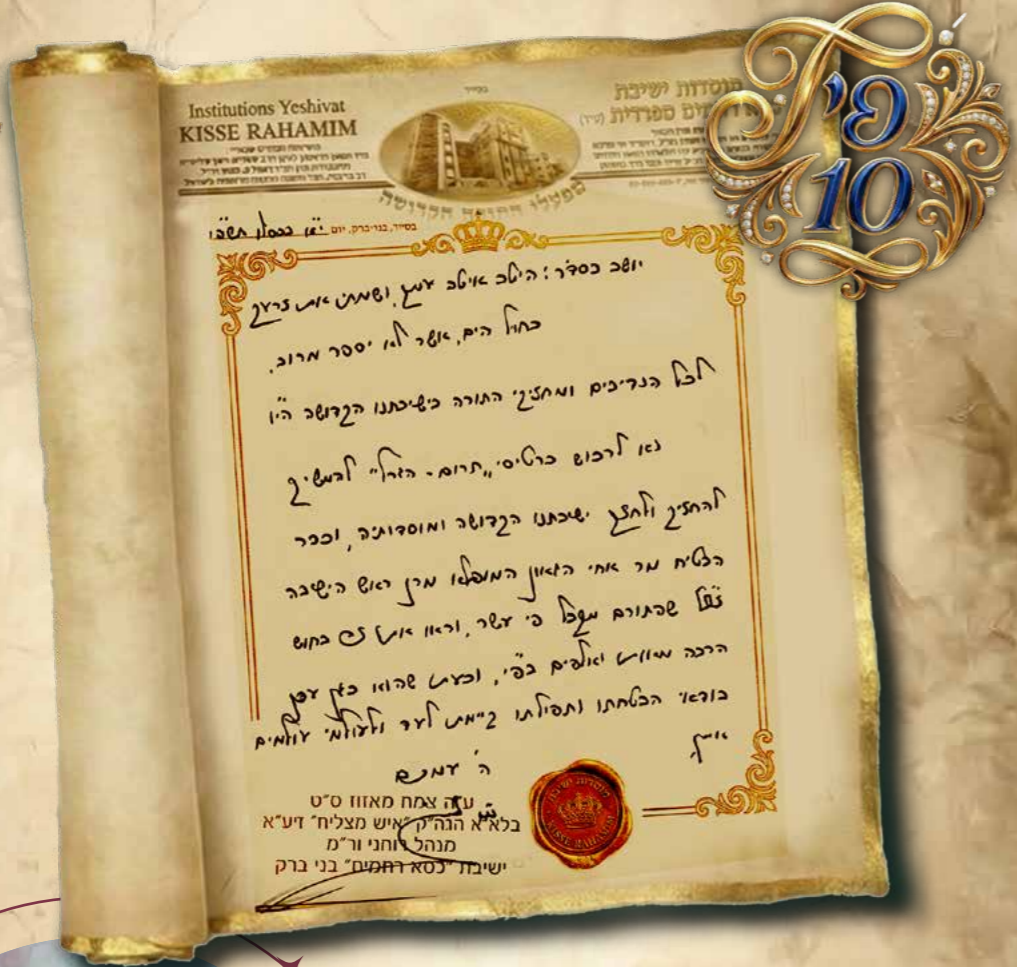 בסייד
Institutions Yeshivat
KISSE RAHAMIM
מוסדות ישיבת
ספרדית
מפעלי התורה הקדושה
פי
10
בסייד, בני-ברק, יום י"ו בכסלו תשפ"ו
יושב בסדר: היטב איטיב עמך ושמתי את זרעך
כחול הים, אשר לא יספר מרוב.
לכל הנדיבים ומחזיקי התורה בישיבתנו הקדושה הי"ו
נא לרכוש כרטיסי "תרום - הגרל" להמשיך
להחזיק ולחזק ישיבתנו הקדושה ומוסדותיה, וכבר
הבטיח מר אחי הגאון המופלא מרן ראש הישיבה
זצ"ל שהתורם מקבל פי עשר, וראו את זה בחוש
הרבה מאות ואלפים בפ"י, וכעת שהוא בגן עדן
בודאי הבטחתו ותפילתו קיימת לעד ולעולמי עולמים
אמן.
ה' עמכם
צמח מאזוז ס"ט
בלא"א הגה"ק "איש מצליח" זיע"א
מנהל רוחני ור"מ
ישיבת "כסא רחמים" בני ברק
מוסדות ישיבת
KISSE RAHAMIM